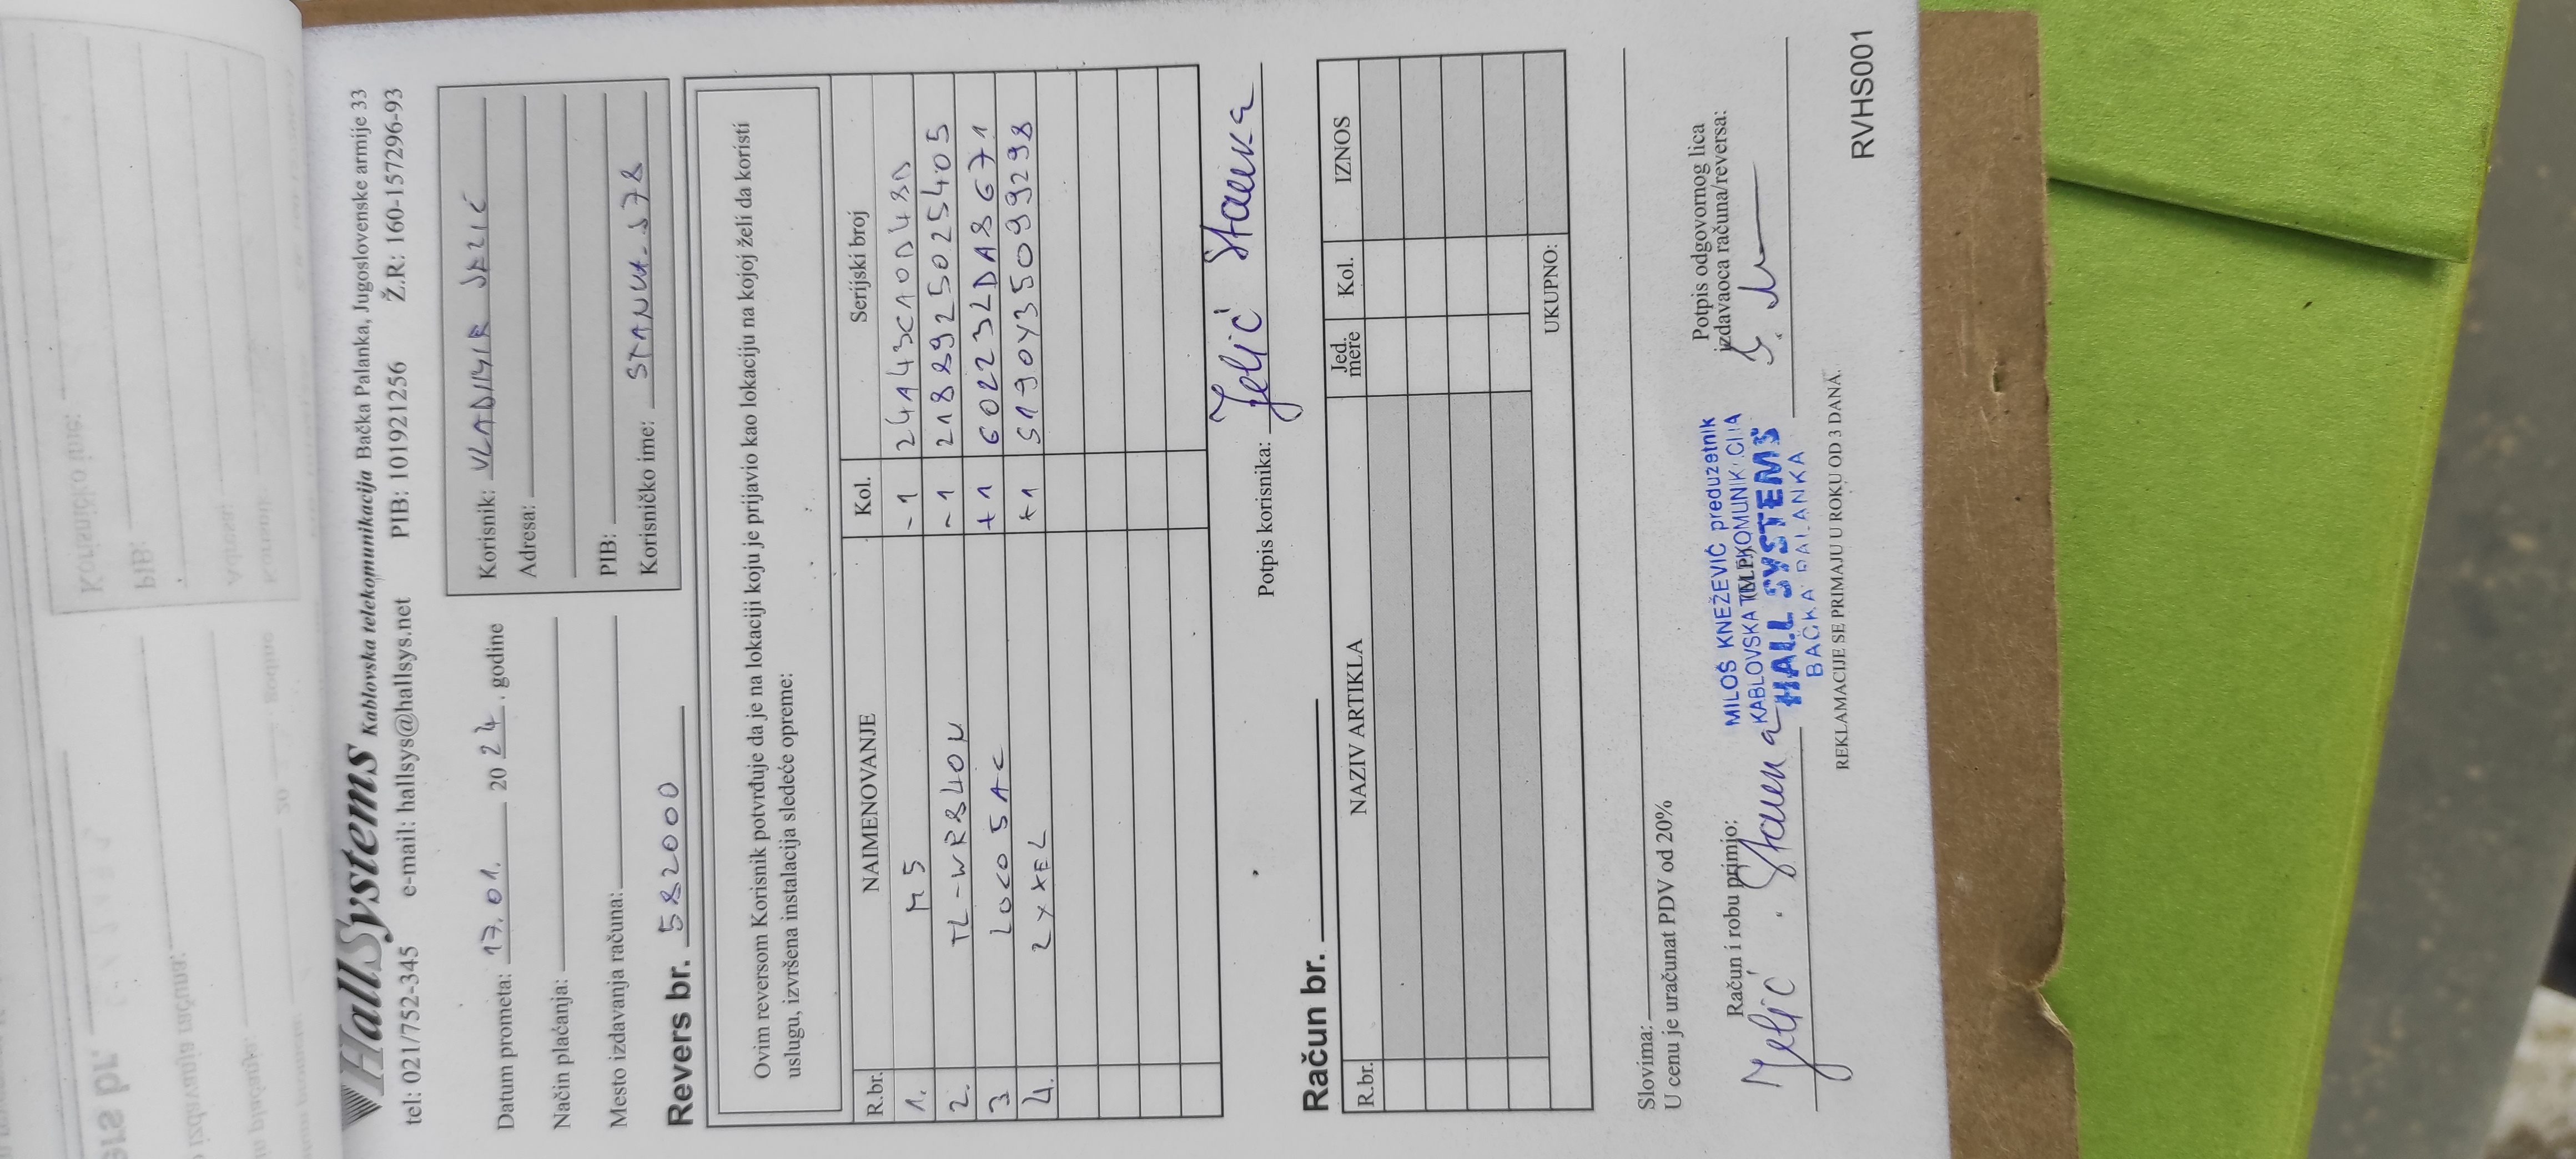 HallSystems Kablovska telekomunikacija Bačka Palanka, Jugoslovenske armije 33
tel: 021/752-345 e-mail: hallsys@hallsys.net PIB: 101921256 Ž.R: 160-157296-93
Datum prometa: 17.01. 2024. godine
Način plaćanja:
Mesto izdavanja računa:
Korisnik: VLADIMIR
Adresa:
PIB:
Korisničko ime:
Revers br. 582000
Ovim reversom Korisnik potvrđuje da je na lokaciji koju je prijavio kao lokaciju na kojoj želi da koristi
uslugu, izvršena instalacija sledeće opreme:
R.br. NAIMENOVANJE Kol. Serijski broj
1. M5 -1 24A43C10D48D
2. TL-WR840N -1 2188925025405
3 LOCO 5AC +1 602232DA8671
4. ZYXEL +1 S190Y35099298
Potpis korisnika: Jelić Stanka
Račun br.
R.br. NAZIV ARTIKLA Jed. mere Kol. IZNOS
UKUPNO:
Slovima:
U cenu je uračunat PDV od 20%
Račun i robu primio:
Jelić
MILOŠ KNEŽEVIĆ preduzetnik
KABLOVSKA
HALL SYSTEMS
BAČKA PALANKA
Potpis odgovornog lica
izdavaoca računa/reversa:
REKLAMACIJE SE PRIMAJU U ROKU OD 3 DANA.
RVHS001